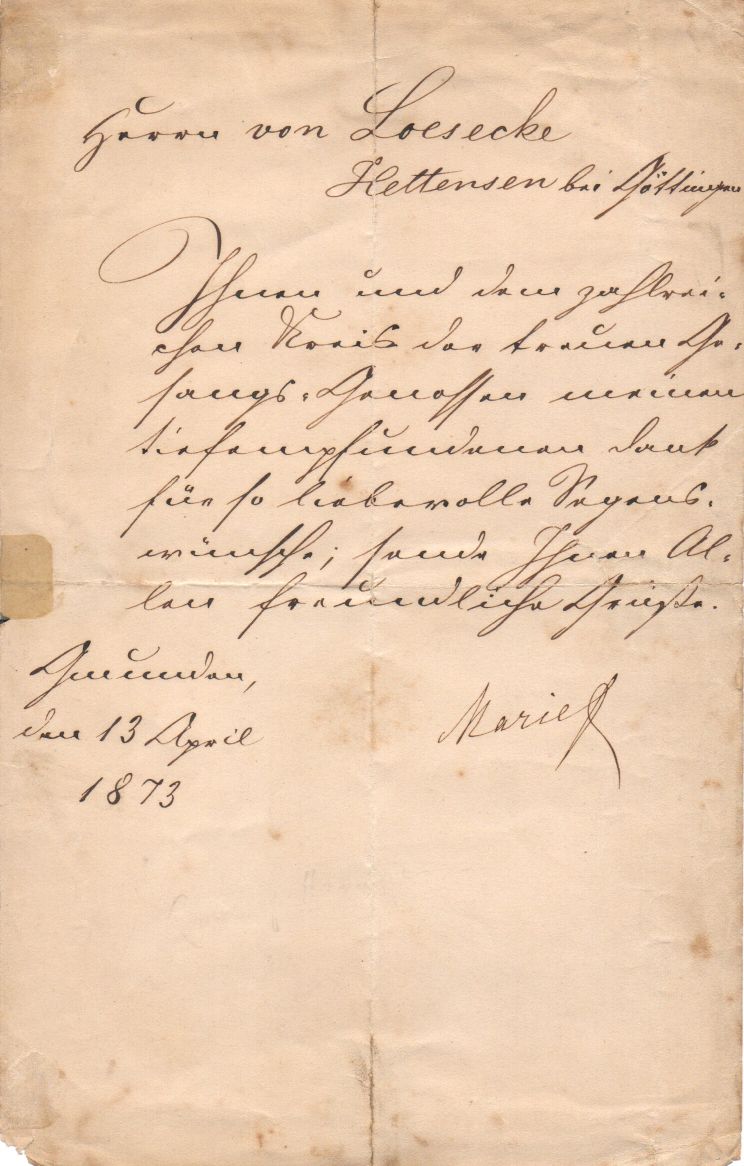 Herrn von Loesecke
Hettensen bei Göttingen
Ihnen und dem zahlrei-
chen Kreis der treuen Ge-
sangs-Genossen meinen
tiefempfundenen Dank
für so liebevolle Segens-
wünsche; sende Ihnen Al-
len freundliche Grüße.
Gmunden,
den 13 April
1873
Marie